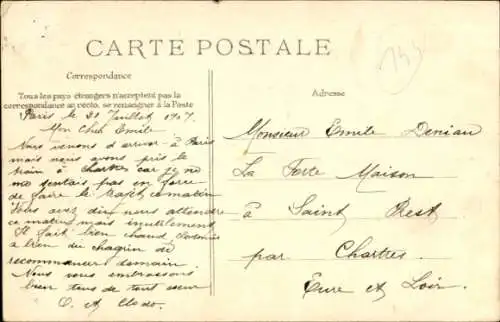 CARTE POSTALE
Correspondance
Tous les pays étrangers n'acceptent pas la
correspondance au recto, se renseigner à la Poste
Paris le 30 Juillet 1907.
Mon Cher Emile
Nous venons d'arriver à Paris
mais nous avons pris le
train à Chartres car je ne
me sentais pas en force
de faire le trajet ce matin
Vous avez dû nous attendre
ce matin mais inutilement
Il fait bien chaud,
a bien du chagrin de
recommencer demain
Nous vous embrassons
bien tous de tout cœur
Adresse
Monsieur Emile Denian
La Forte Maison
à Saint Prest
par Chartres.
Eure et Loir.